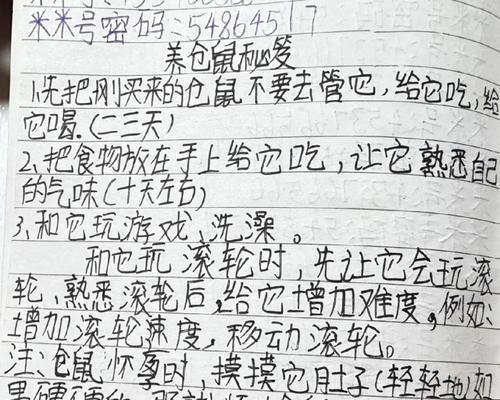 米米号密码:54864517
养仓鼠秘笈
1.先把刚买来的仓鼠不要去管它,给它吃,给
它喝.(二三天)
2、把食物放在手上给它吃,让它熟悉自己
的气味(十天左右)
3、和它玩游戏、洗澡。
和它玩滚轮时,先让它会玩滚
轮、熟悉滚轮后,给它增加难度,例如:
增加滚轮速度,移动滚轮。
注:仓鼠怀孕时,摸摸它肚子(轻轻地)如
果硬硬的